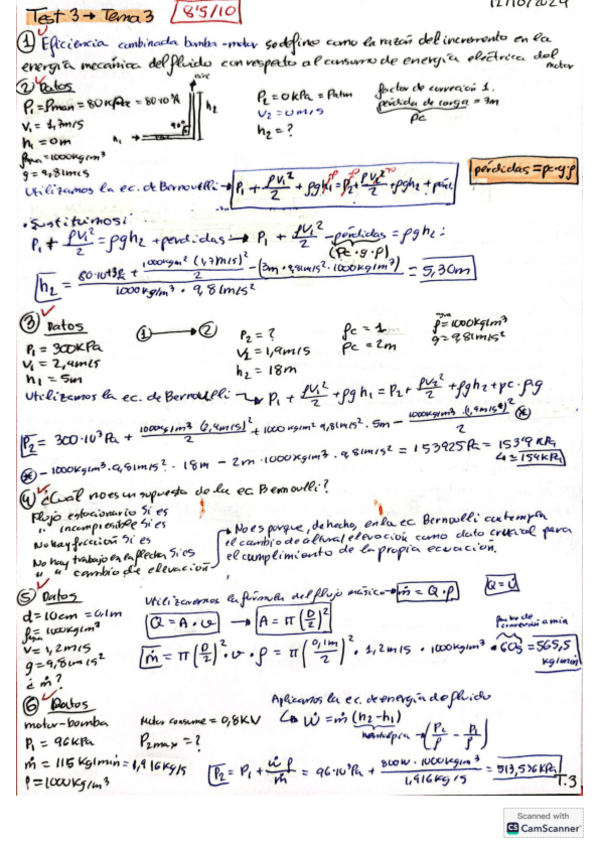 Test 3 → Tema 3   8'5/10   12/10/2024
① Eficiencia combinada bomba-motor se define como la razón del incremento en la
energía mecánica del fluido con respecto al consumo de energía eléctrica del motor
② Datos
P₁ = Pman = 80 KPa = 80·10³
V₁ = 1,7m/s
h₁ = 0m
ρ = 1000kg/m³
g = 9,81m/s²
h₂
90°
h₁
P₂ = 0KPa = Patm
V₂ = 0m/s
h₂ = ?
factor de corrección 1.
pérdida de carga = 3m
ρc
Utilizamos la ec. de Bernoulli → P₁ + ρV₁²/2 + ρgh₁ = P₂ + ρV₂²/2 + ρgh₂ + pérd.
pérdidas = ρc·g·ρ
• Sustituimos:
P₁ + ρV₁²/2 = ρgh₂ + pérdidas → P₁ + ρV₁²/2 - pérdidas = ρgh₂:
(ρc·g·ρ)
h₂ = 80·10³ + 1000kg/m³ (1,7m/s)²/2 - (3m·9,81m/s²·1000kg/m³) / 1000kg/m³ · 9,81m/s² = 5,30m
③ Datos
P₁ = 300KPa
V₁ = 2,4m/s
h₁ = 5m
① → ②
P₂ = ?
V₂ = 1,9m/s
h₂ = 18m
ρc = 1m
ρc = 2m
ρ = 1000kg/m³
g = 9,81m/s²
Utilizamos la ec. de Bernoulli → P₁ + ρV₁²/2 + ρgh₁ = P₂ + ρV₂²/2 + ρgh₂ + ρc·ρg
P₂ = 300·10³Pa + 1000kg/m³ (2,4m/s)²/2 + 1000kg/m³ 9,81m/s² · 5m - 1000kg/m³ · (1,9m/s)²/2 ⊛
⊛ - 1000kg/m³ · 9,81m/s² · 18m - 2m · 1000kg/m³ · 9,81m/s² = 153925Pa = 153'9 KPa
≅ 154KPa
④ ¿Cuál no es un supuesto de la ec. Bernoulli?
Flujo estacionario Si es
" incompresible Si es
No hay fricción Si es
No hay trabajo en la flecha Si es
" " cambio de elevación
→ No es porque, de hecho, en la ec. Bernoulli contempla
el cambio de altura/elevación como dato crucial para
el cumplimiento de la propia ecuación.
⑤ Datos
d = 10cm = 0,1m
ρ = 1000kg/m³
V = 1,2m/s
g = 9,81m/s²
¿ṁ?
Utilizaremos la fórmula del flujo másico → ṁ = Q·ρ
Q = V̇
Q = A·v → A = π(D/2)²
ṁ = π(D/2)²·v·ρ = π(0,1m/2)² · 1,2m/s · 1000kg/m³ · 60s = 565,5 kg/min
a min
⑥ Datos
motor-bomba
P₁ = 96KPa
ṁ = 115 Kg/min = 1,916Kg/s
ρ = 1000Kg/m³
Motor consume = 0,8KV
P₂max = ?
Aplicamos la ec. de energía de fluido
↳ Ẇ = ṁ(h₂-h₁)
entalpia → (P₂/ρ - P₁/ρ)
P₂ = P₁ + ẇρ/ṁ = 96·10³Pa + 800W·1000Kg/m³ / 1,916Kg/s = 513,536KPa
T.3
Scanned with
CS CamScanner